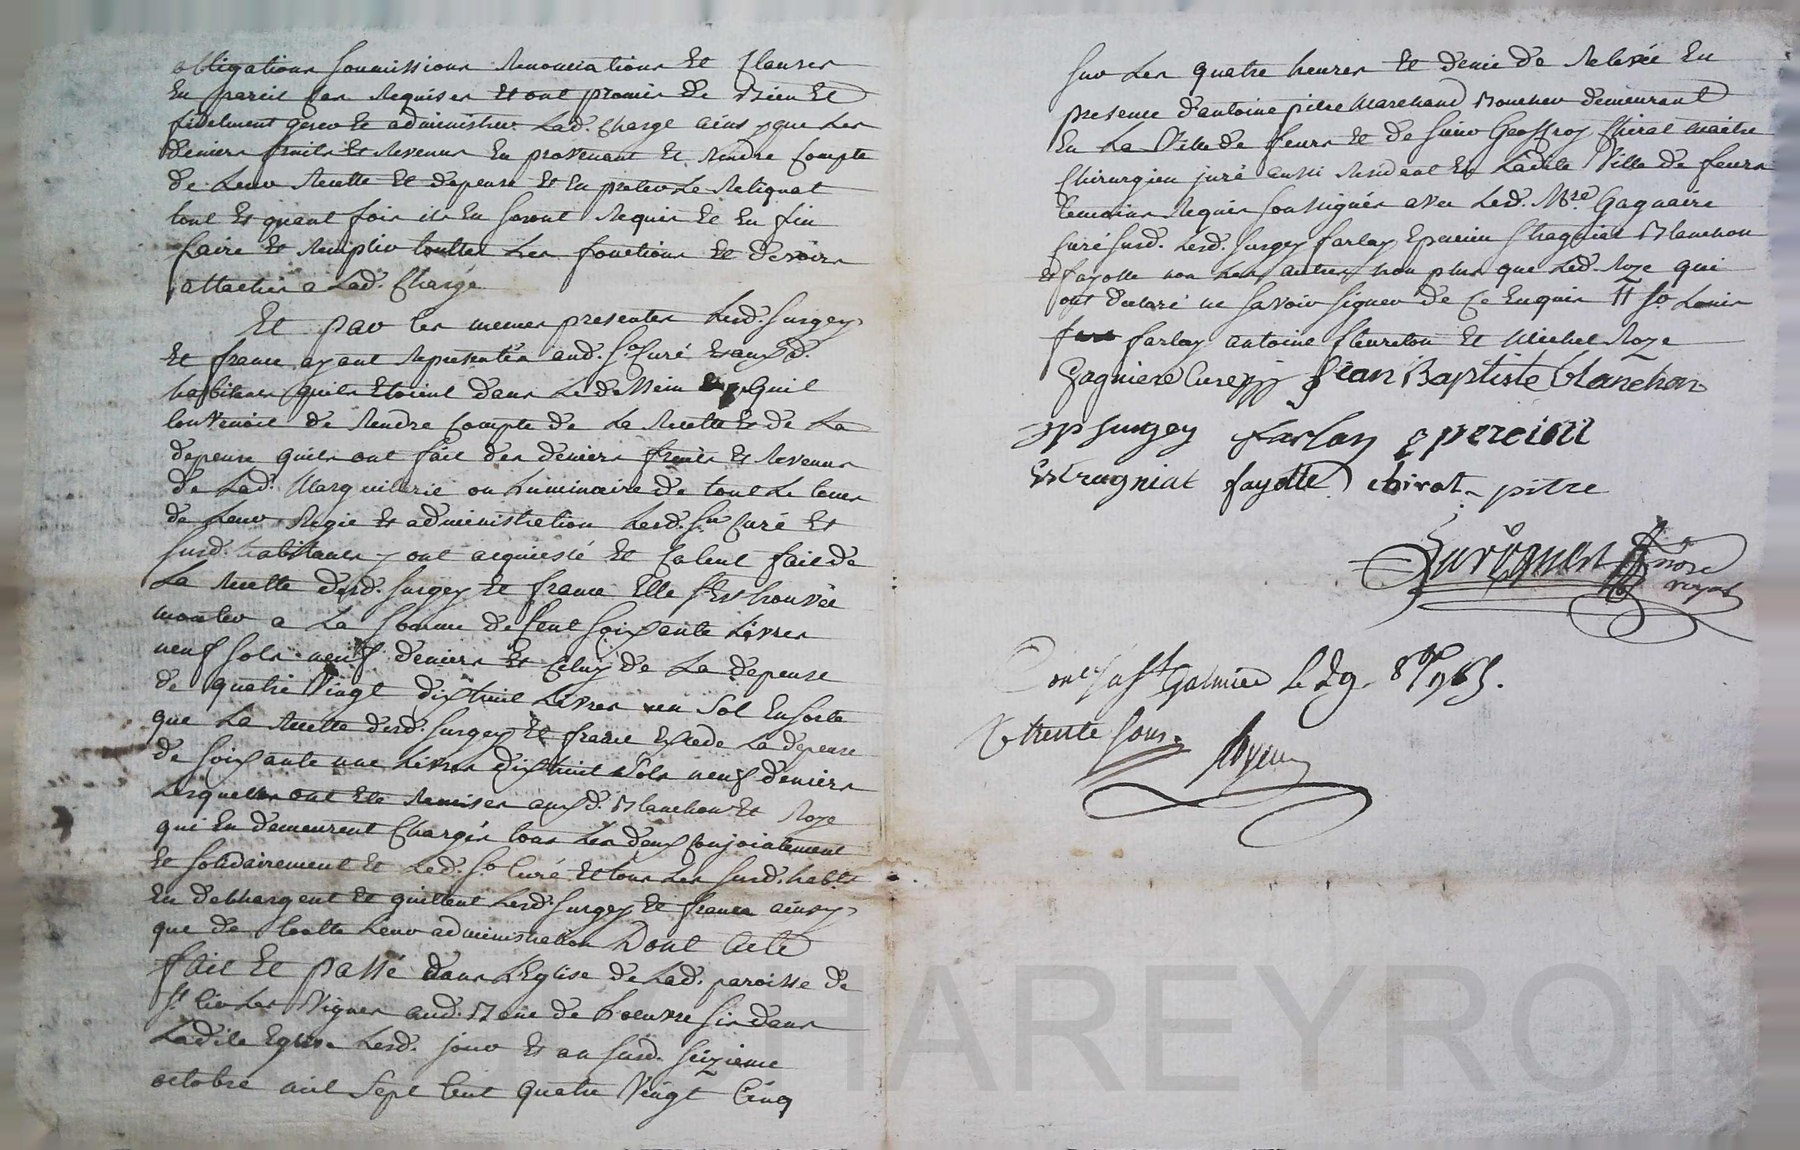 obligations soumissions renonciations Et Clauses
En pareil Cas Requises Et ont promis de Bien Et
fidelment gerer Et administrer Lad. Charge ainsy que Les
deniers fruits Et Revenus En provenant Et Rendre Compte
de Leur Recette Et depense Et En preter Le Reliquat
tout Et quant fois ils En seront Requis Et En fin
faire Et Remplir touttes Les fonctions Et devoirs
attachés a Lad. Charge
Et par les memes presentes Lesd. Surgey
Et france ayant Representés aud. Sr. Curé Et auxd.
habitans quils Etoient dans Le dessein quil
Convenoit de Rendre Compte de La Recette Et de La
depense quils ont fait des deniers fruits Et Revenus
de Lad. Marguilerie ou Luminaire de tout Le tems
de Leur Regie Et administration Lesd. Sr. Curé Et
susd. habitans y ont acquiescé Et Calcul fait de
La Recette desd. Surgey Et france Elle s'Est trouvée
monter a La somme de Cent soixante Livres
neuf sols neuf deniers Et Celuy de La depense
de quatre Vingt dix huit Livres un sol Ensorte
que La Recette desd. Surgey Et france Exede La depense
de soixante une Livres dix huit sols neuf deniers
Lesquelles ont Eté Remises auxd. Blanchon Et Roze
qui En demeurent Chargés tous Les deux Conjointement
Et solidairement Et Led. Sr. Curé Et tous Les susd. habts.
En dechargent Et quittent Lesd. Surgey Et france ainsy
que de toutte Leur administration Dont Acte
fait Et passé dans L'Eglise de Lad. paroisse de
St. Cir Les Vignes aud. Banc de L'oeuvre sis dans
Ladite Eglise Lesd. jour Et an susd. seizieme
octobre mil sept Cent quatre Vingt Cinq
sur Les quatre heures Et demie de Relevée En
presence d'antoine pitre Marchand Boucher demeurant
En La Ville de feurs Et de sieur Geoffroy Chirat Maitre
Chirurgien juré aussi Resident En Ladite Ville de feurs
temoins Requis soussignés avec Led. Mre. Gagnaire
Curé susd. Lesd. Surgey farlay Epercieu Chagniat Blanchon
Et fayolle non Les autres non plus que Led. Roze qui
ont declaré ne savoir signer de Ce Enquis Sr. Louis
farlay antoine fleureton Et Michel Roze
Gagniere Curé jean Baptiste blanchon
jp surgey farlay epercieu
Estragniat fayolle chirat pitre
nore
royal
Conlé à St Galmier Le 29. 8bre 1785.
R trente sous.
CHAREYRON